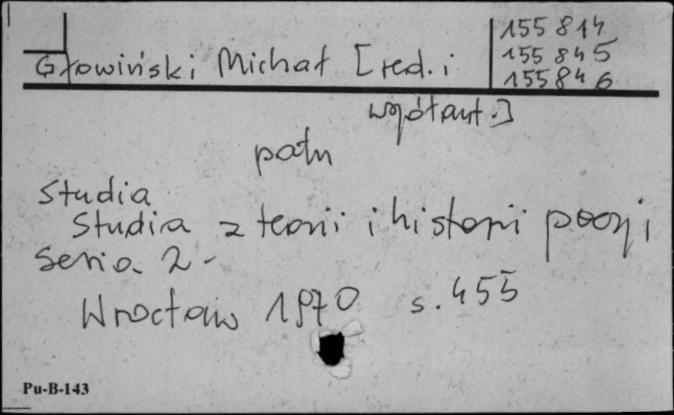 155 814
155 845
155 846
Głowiński Michał [red. i
współaut.]
patrz
Studia
Studia z teorii i historii poezji
Seria 2.
Wrocław 1970 s. 455
Pu-B-143